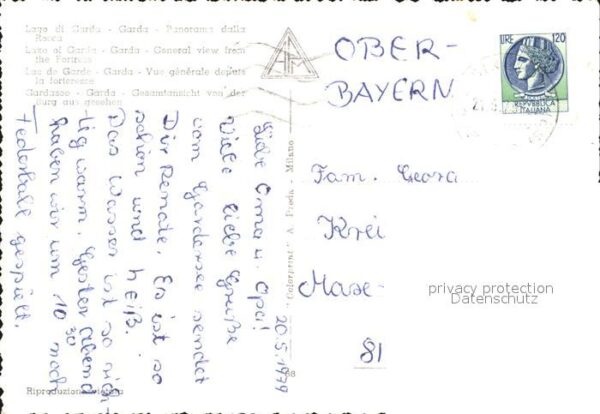 Lago di Garda - Garda - Panorama dalla
Rocca
Lake of Garda - Garda - General view from
the Fortress
Lac de Garde - Garda - Vue générale depuis
la forteresse
Gardasee - Garda - Gesamtansicht von der
Burg aus gesehen
OBER-
BAYERN
LIRE 120
REPUBBLICA
ITALIANA
20.5.1979
Liebe Oma u. Opa!
Viele liebe Grüße
vom Gardasee sendet
Dir Renate. Es ist so
schön und heiß.
Das Wasser ist so rich
tig warm. Gestern Abend
haben wir um 10 30 noch
Federball gespielt.
Fam. Georg
Krei
Mase-
81
"Colorprint" A. Preda - Milano
68
Riproduzione vietata
privacy protection
Datenschutz